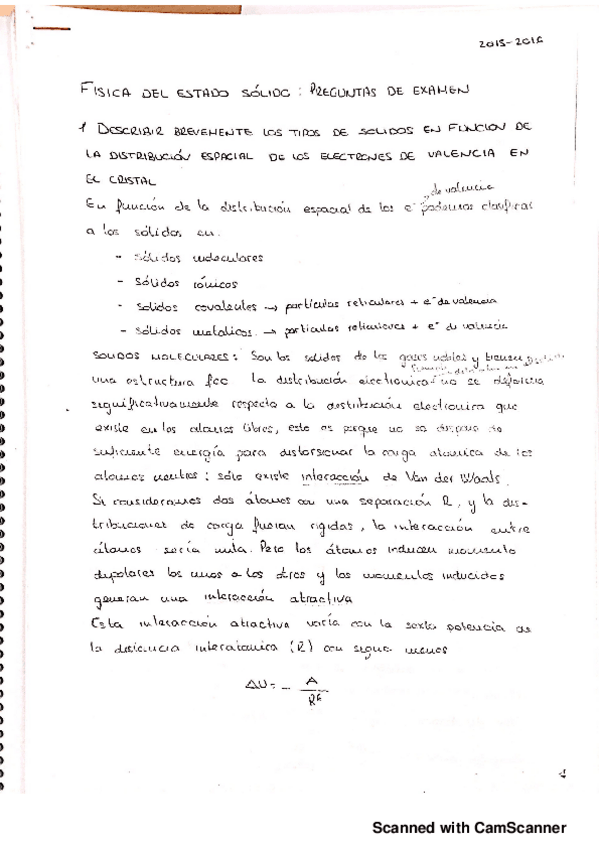 2015-2016
FÍSICA DEL ESTADO SÓLIDO: PREGUNTAS DE EXAMEN
1 DESCRIBIR BREVEMENTE LOS TIPOS DE SOLIDOS EN FUNCION DE
LA DISTRIBUCIÓN ESPACIAL DE LOS ELECTRONES DE VALENCIA EN
EL CRISTAL
de valencia
En función de la distribución espacial de los e⁻ podemos clasificar
a los sólidos en:
- Sólidos moleculares
- Sólidos iónicos
- Solidos covalentes → partículas reticulares + e⁻ de valencia
- Sólidos metalicos → partículas reticulares + e⁻ de valencia
SOLIDOS MOLECULARES: Son los sólidos de los gases nobles y tienen
una estructura fcc la distribución electrónica no se deforma
significativamente respecto a la distribución electronica que
existe en los átomos libres, esto es porque no se dispone de
suficiente energía para distorsionar la carga atomica de los
átomos neutros: sólo existe interacción de Van der Waals.
Si consideramos dos átomos con una separación R, y la dis-
tribuciones de carga fueran rigidas, la interacción entre
átomos sería nula. Pero los átomos inducen momento
dipolares los unos a los otros y los momentos inducidos
generan una interacción atractiva
Esta interacción atractiva varía con la sexta potencia de
la distancia interatomica (R) con signo menos
ΔU = - A / R⁶
1
Scanned with CamScanner